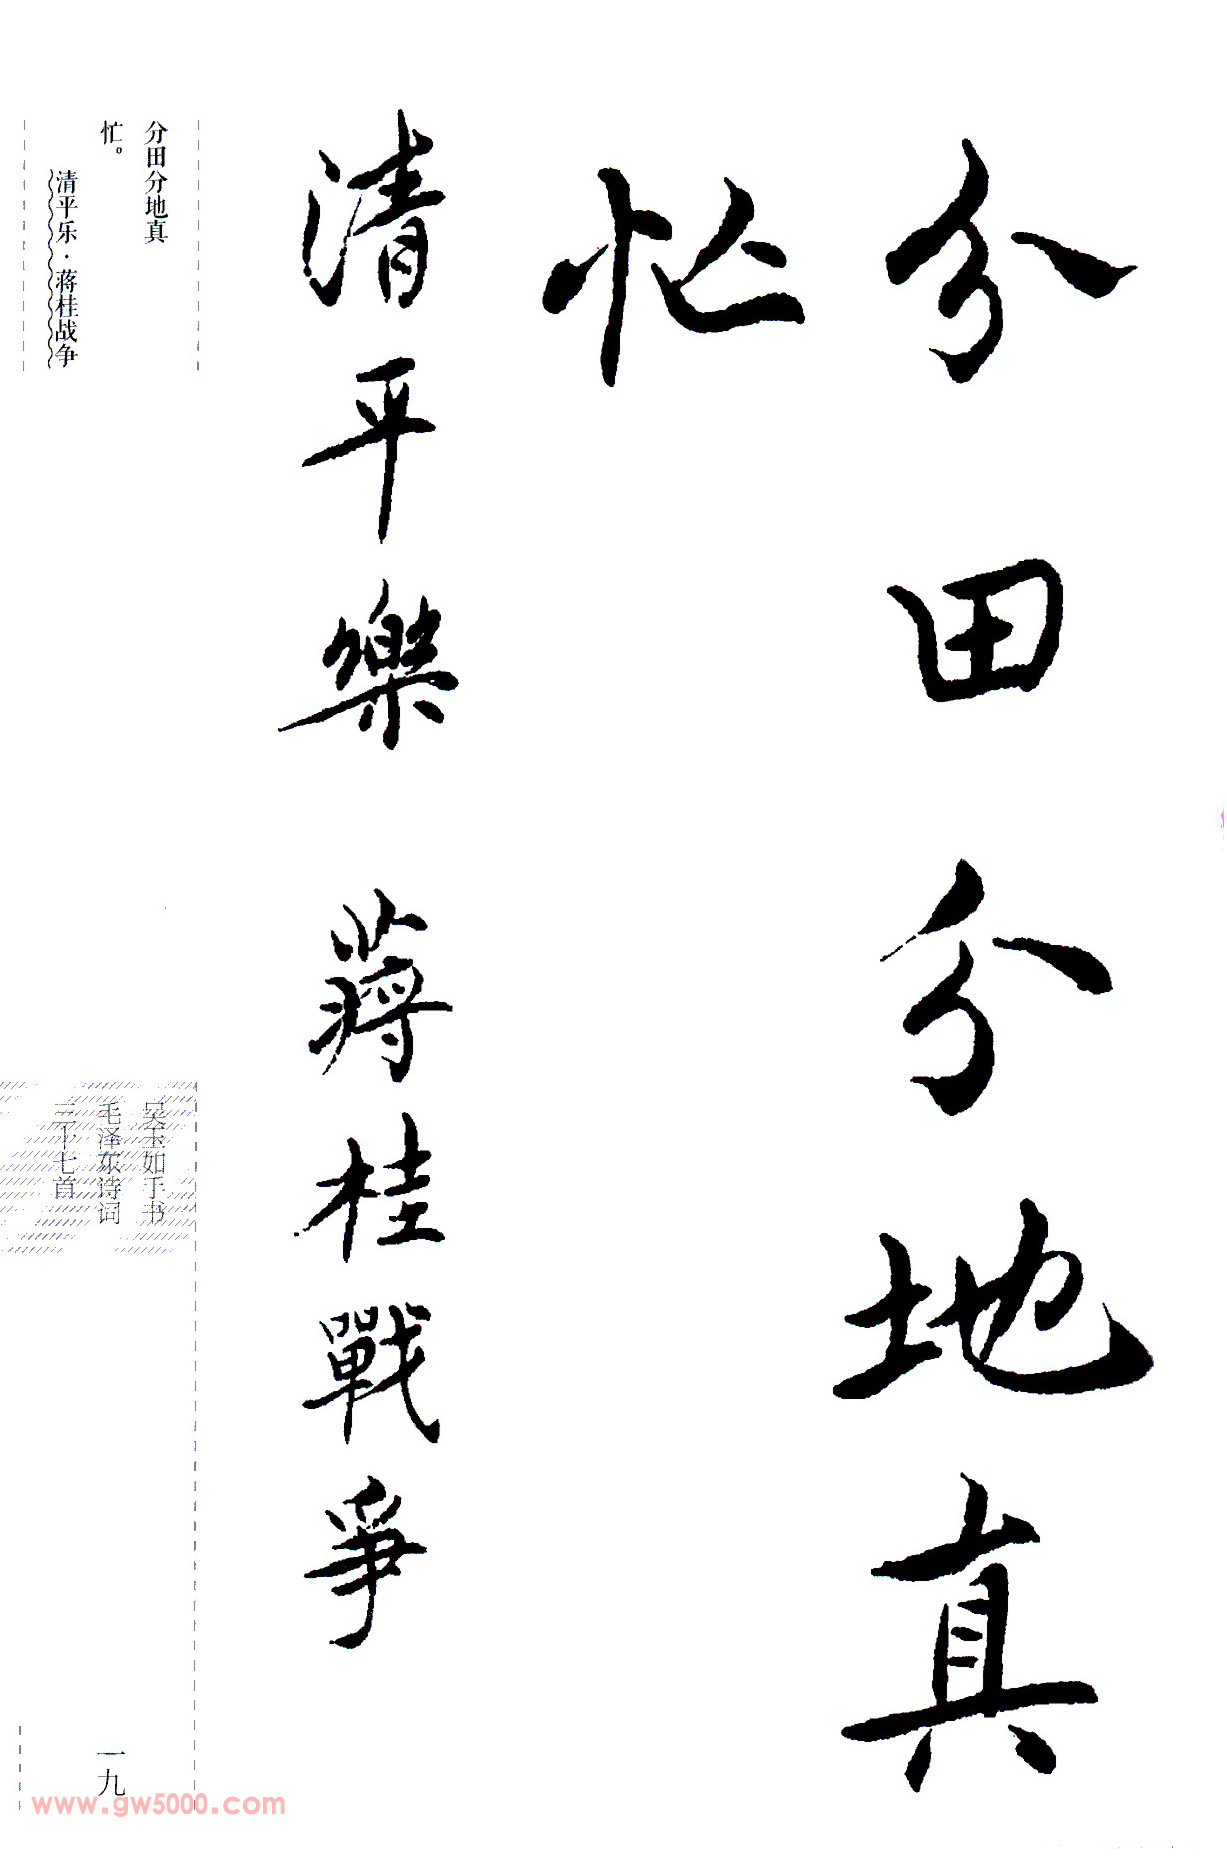 分田分地真
忙
清平樂 蔣桂戰爭
分田分地真
忙。
清平乐·蒋桂战争
吴玉如手书
毛泽东诗词
三十七首
一九
www.gw5000.com